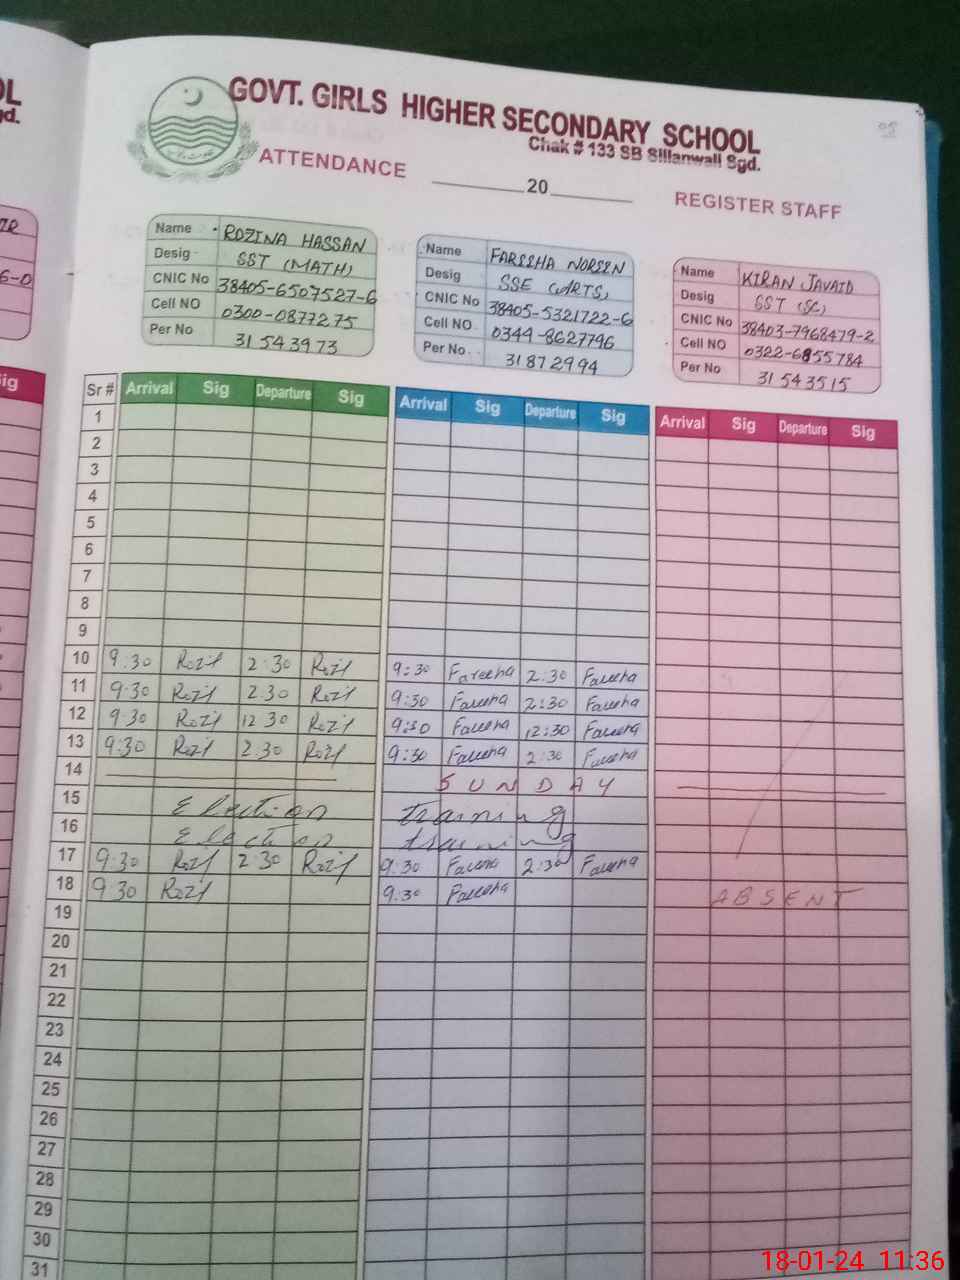 GOVT. GIRLS HIGHER SECONDARY SCHOOL
Chak # 133 SB Sillanwali Sgd.
ATTENDANCE 20 REGISTER STAFF
Name ROZINA HASSAN
Desig SST (MATH)
CNIC No 38405-6507527-6
Cell NO 0300-0877275
Per No 31543973
Name FAREEHA NOREEN
Desig SSE (ARTS)
CNIC No 38405-5321722-6
Cell NO 0344-8627796
Per No 31872994
Name KIRAN JAVAID
Desig SST (SC)
CNIC No 38403-7968479-2
Cell NO 0322-6855784
Per No 31543515
Sr # Arrival Sig Departure Sig Arrival Sig Departure Sig Arrival Sig Departure Sig
1
2
3
4
5
6
7
8
9
10 9:30 2:30 9:30 Fareeha 2:30 Fareeha
11 9:30 2:30 9:30 Fareeha 2:30 Fareeha
12 9:30 12:30 9:30 Fareeha 12:30 Fareeha
13 9:30 2:30 9:30 Fareeha 2:30 Fareeha
14 SUNDAY
15 Election training
16 Election training
17 9:30 2:30 9:30 Fareeha 2:30 Fareeha
18 9:30 9:30 Fareeha ABSENT
19
20
21
22
23
24
25
26
27
28
29
30
31
18-01-24 11:36